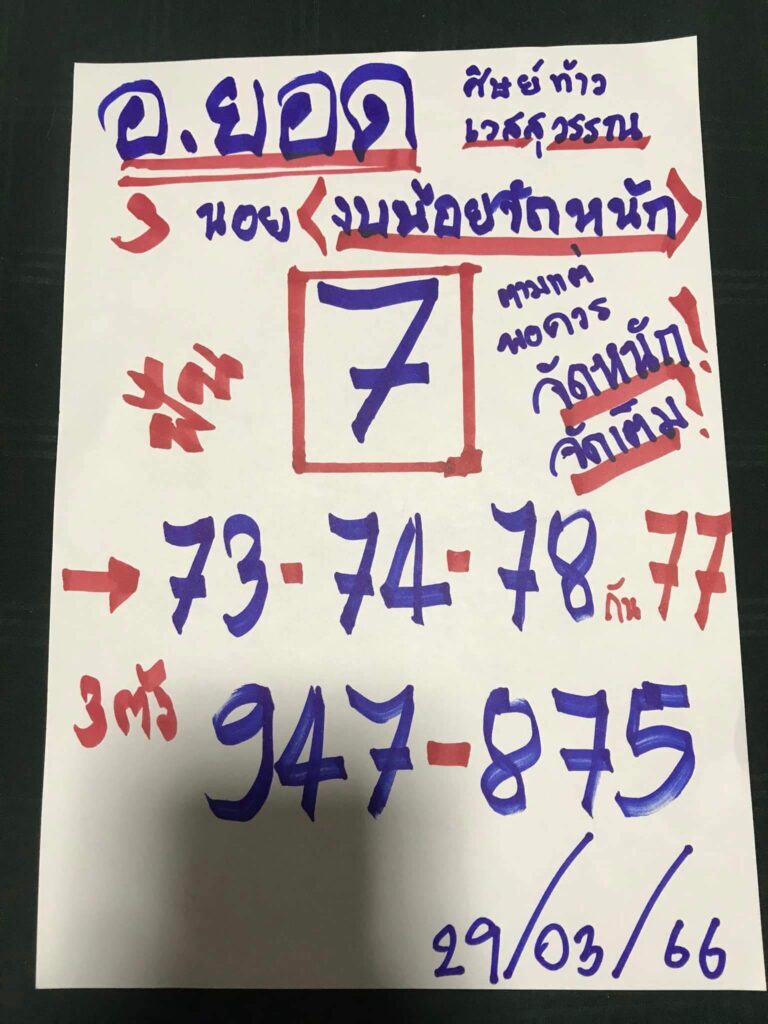 อ.ยอด
ศิษย์ท้าว
เวสสุวรรณ
3 นอย <งบน้อยจัดหนัก>
ฟัน
7
ตามแต่
พอควร
จัดหนัก!
จัดเต็ม!
→ 73-74-78 กัน 77
3 ตัว 947-875
29/03/66